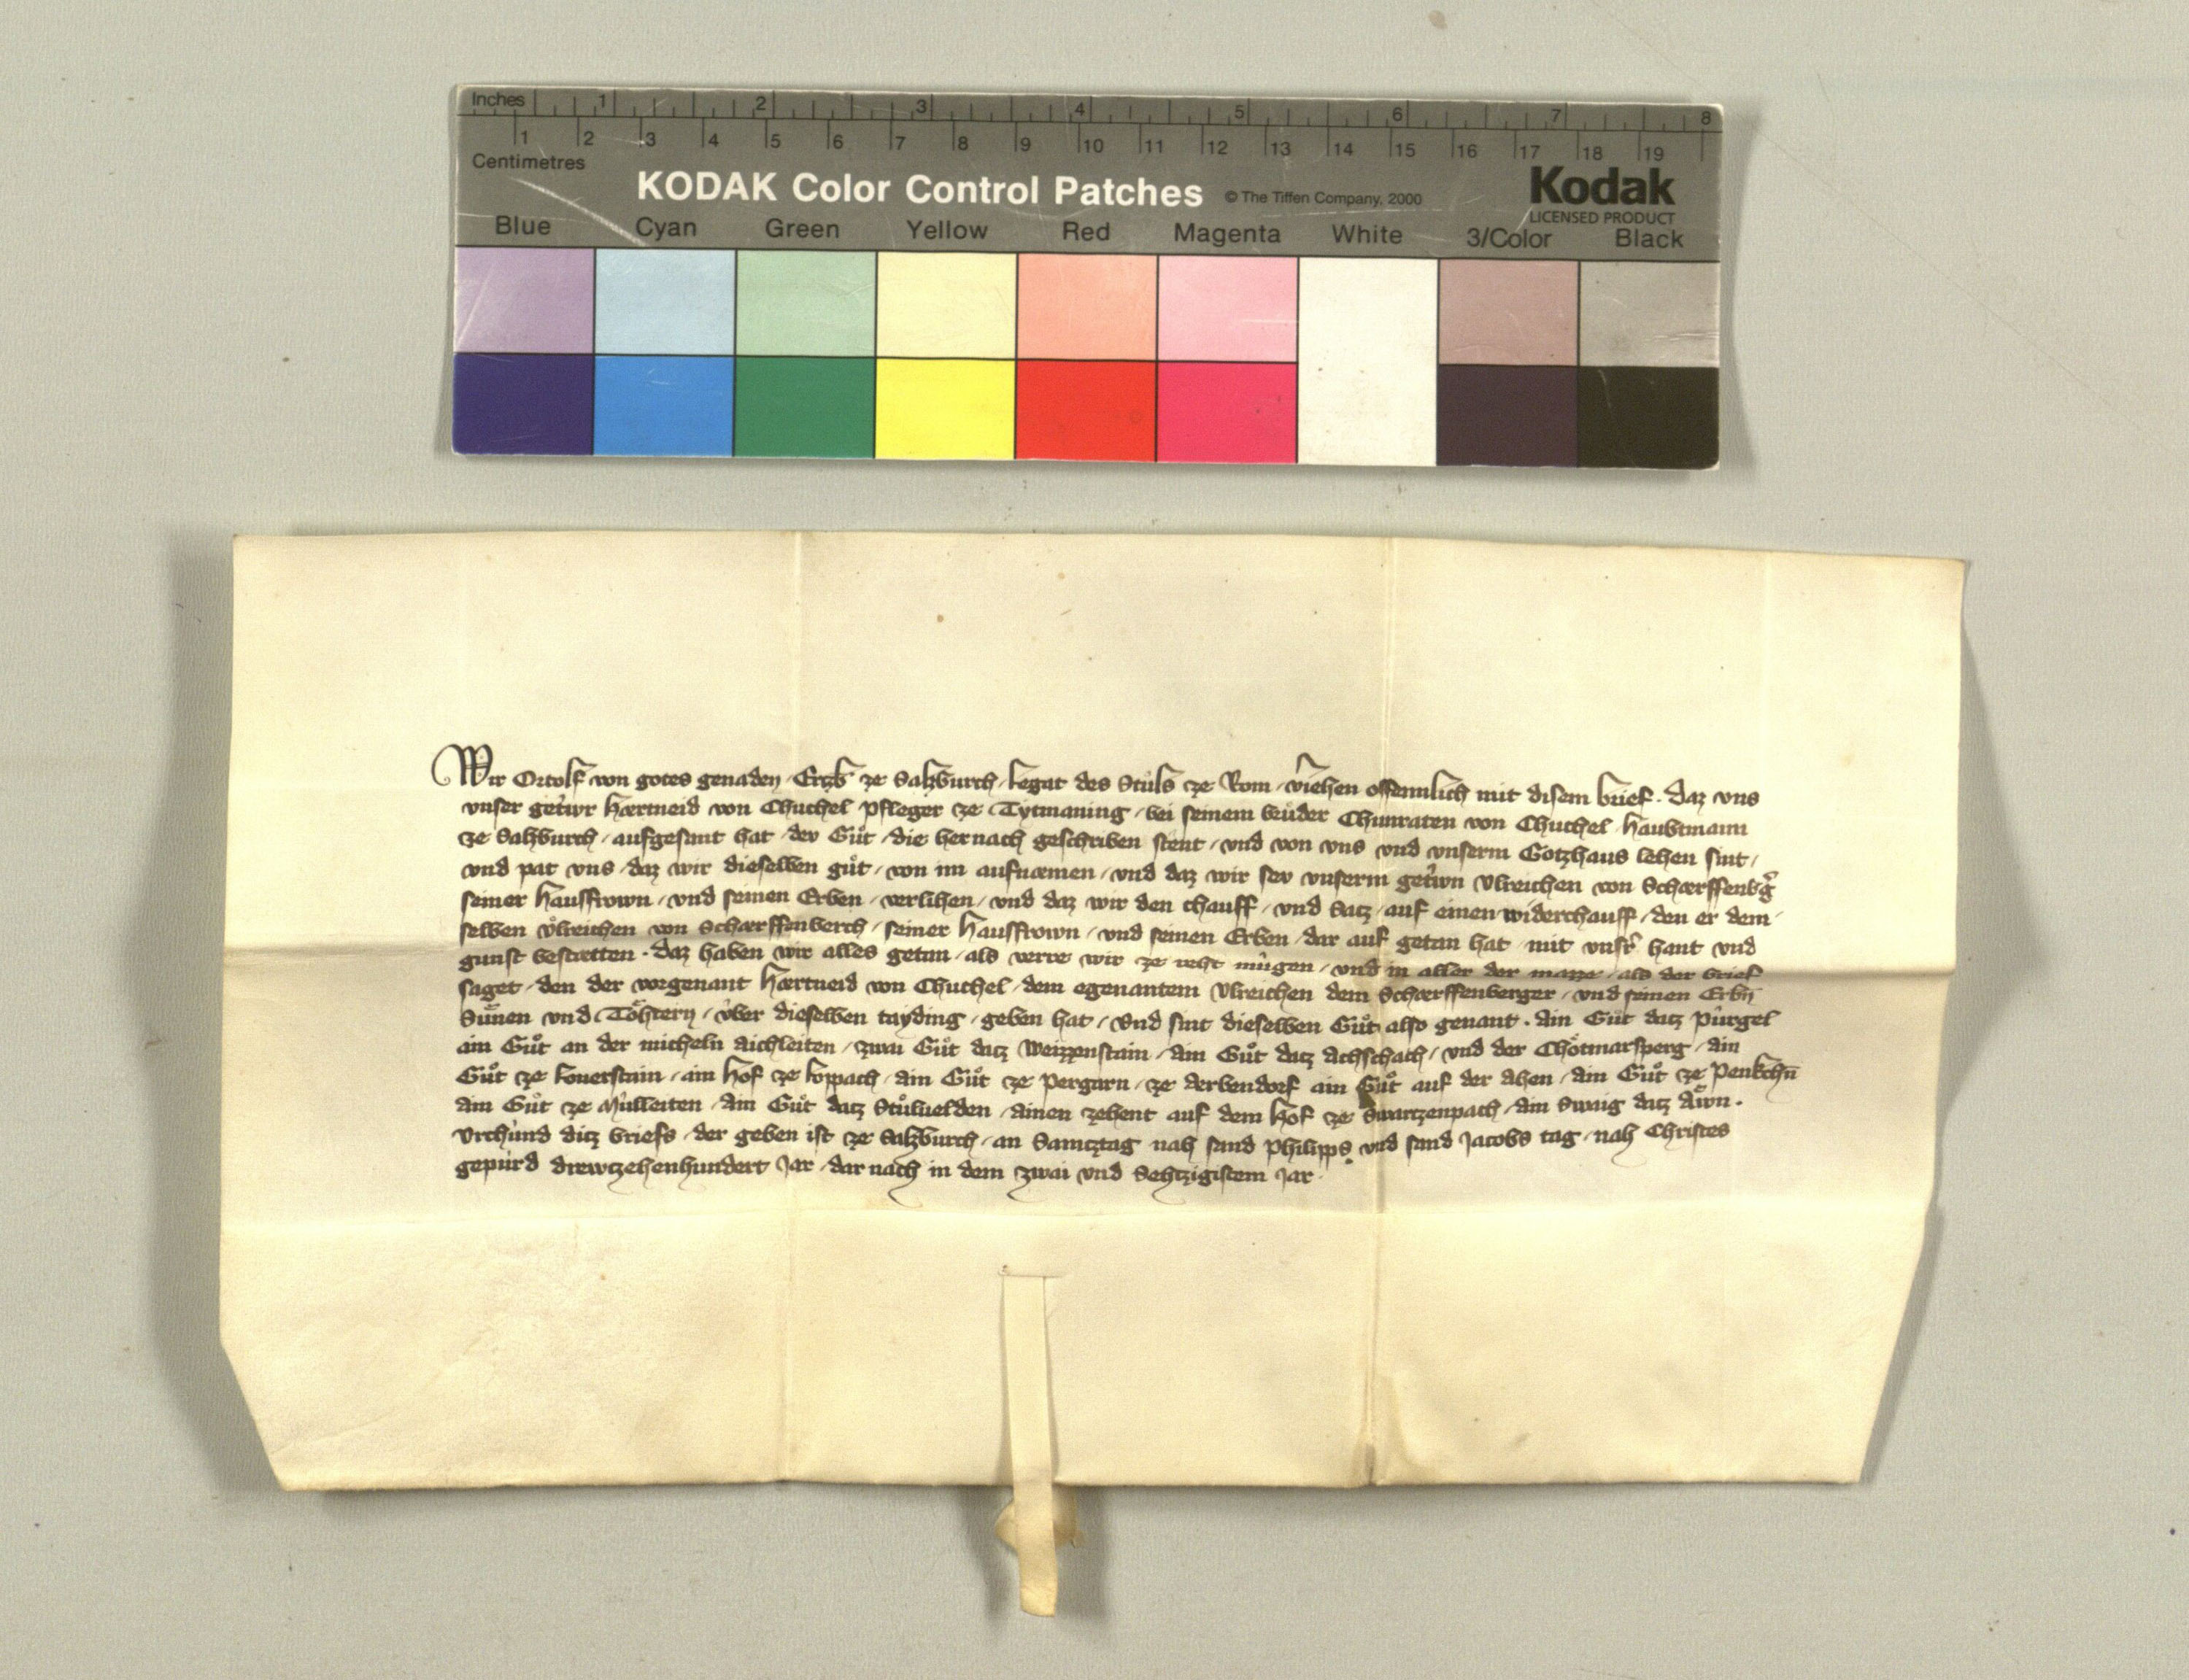 Inches 1 2 3 4 5 6 7 8
1 2 3 4 5 6 7 8 9 10 11 12 13 14 15 16 17 18 19
Centimetres
KODAK Color Control Patches © The Tiffen Company, 2000 Kodak
LICENSED PRODUCT
Blue Cyan Green Yellow Red Magenta White 3/Color Black
Wir Ortolf von gotes genaden Ertzb ze Saltzburch legat des Stuls ze Rom v̂iehen offennlich mit disem brief. Daz vns
vnser getiwr Hærtneid von Chuchel Pfleger ze Tytmaning bei seinem brůder Chunraten von Chuchel Haubtmann
ze Saltzburch aufgesant hat der Gůt die hernach geschriben stent vnd von vns vnd vnserm Gotzhaus lehen sint
vnd pat vns daz wir dieselben gůt von im aufnæmen vnd daz wir seu vnserm getriwn Vlreichen von Schærffenbg̃
seiner Hausfrown vnd seinen Erben verlihen vnd daz wir den chauff vnd Satz auf einen widerchauff den er dem
selben Vͦlreichen von Schærffenberch seiner Hausfrown vnd seinen Erben dar auf getan hat mit vnsr̃ hant vnd
gunst bestætten. Daz haben wir alles getan als verre wir ze reht mügen vnd in aller der mazze als der brief
saget den der vorgenant Hærtneid von Chuchel dem egenantem Vlreichen dem Schærffenberger vnd seinen Erbn̄
Sünen vnd Töhtern vber dieselben tayding geben hat Vnd sint dieselben Gůt also genant. Ain Gůt datz Pürgel
ain Gůt an der micheln Aichleiten zwai Gůt datz Weizzenstain ain Gůt datz Achschach vnd der Chötmarsperg ain
Gůt ze Louerstain ain Hof ze Loppach ain Gůt ze Pergarn ze Aerbendorf ain Gůt auf der Ahen ain Gůt ze Penkchn̄
ain Gůt ze Mülleiten ain Gůt datz Stůluelden ainen zehent auf dem Hof ze Swartzenpach ain Swaig datz Awn.
Vrchünd ditz briefs der geben ist ze Saltzburch an Samtztag nah sand Philipps vnd sand Jacobs tag nah Christes
gepürd drewtzehenhundert Jar dar nach in dem zwai vnd Sehtzigistem Jar.